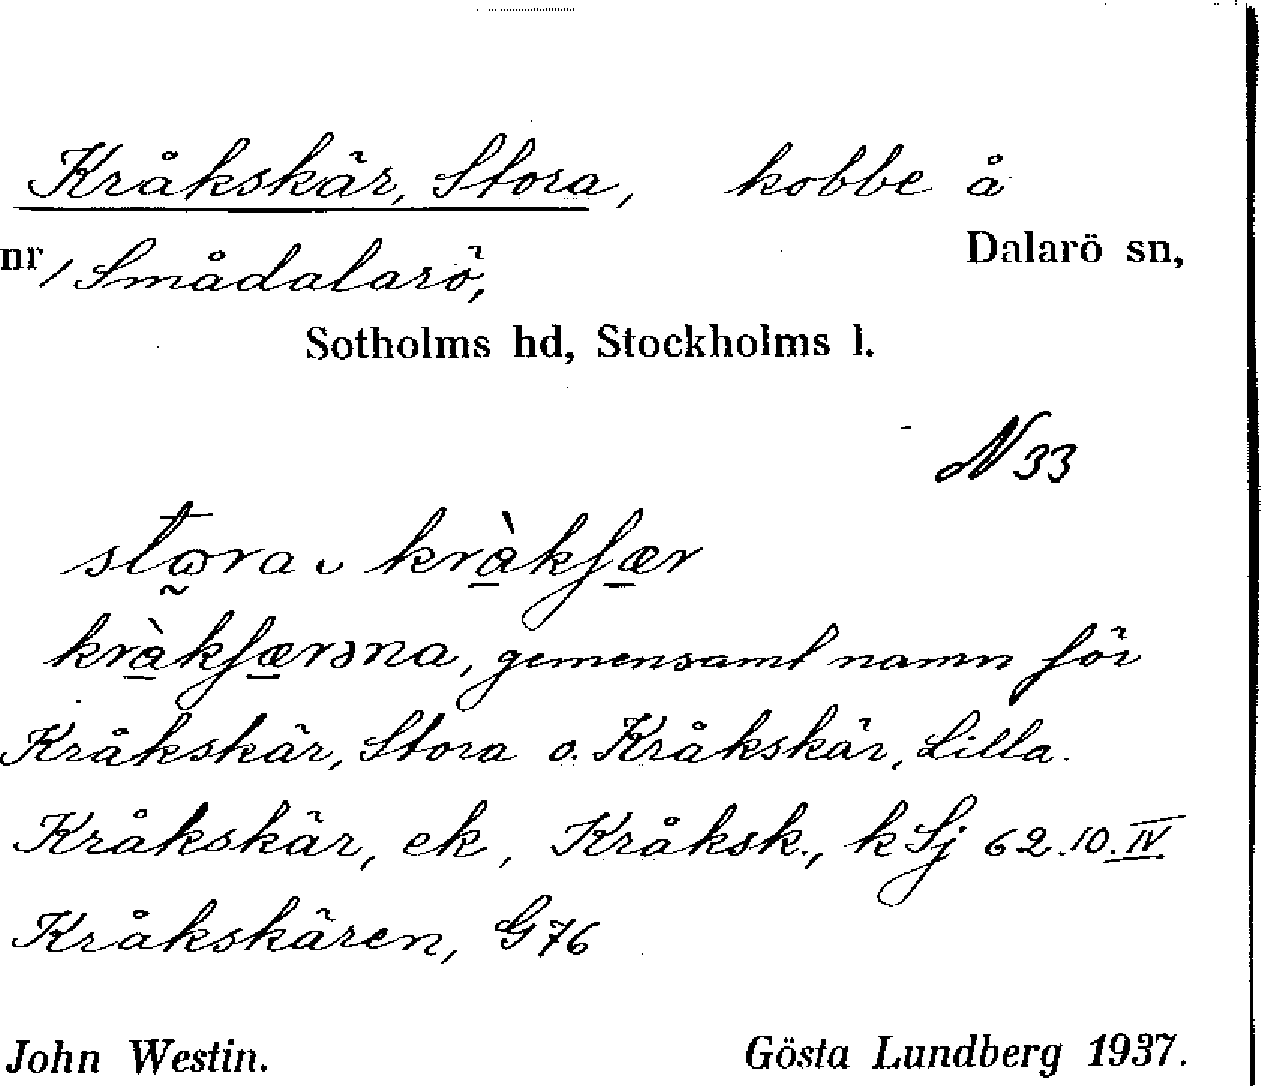 Kråkskär, Stora, kobbe å
nr 1 Smådalarö, Dalarö sn,
Sotholms hd, Stockholms l.
N 33
kråkskär, gemensamt namn för
Kråkskär, Stora o. Kråkskär, Lilla.
Kråkskär, ek, Kråksk., k Sj 62.10.IV
Kråkskären, G 76
John Westin. Gösta Lundberg 1937.